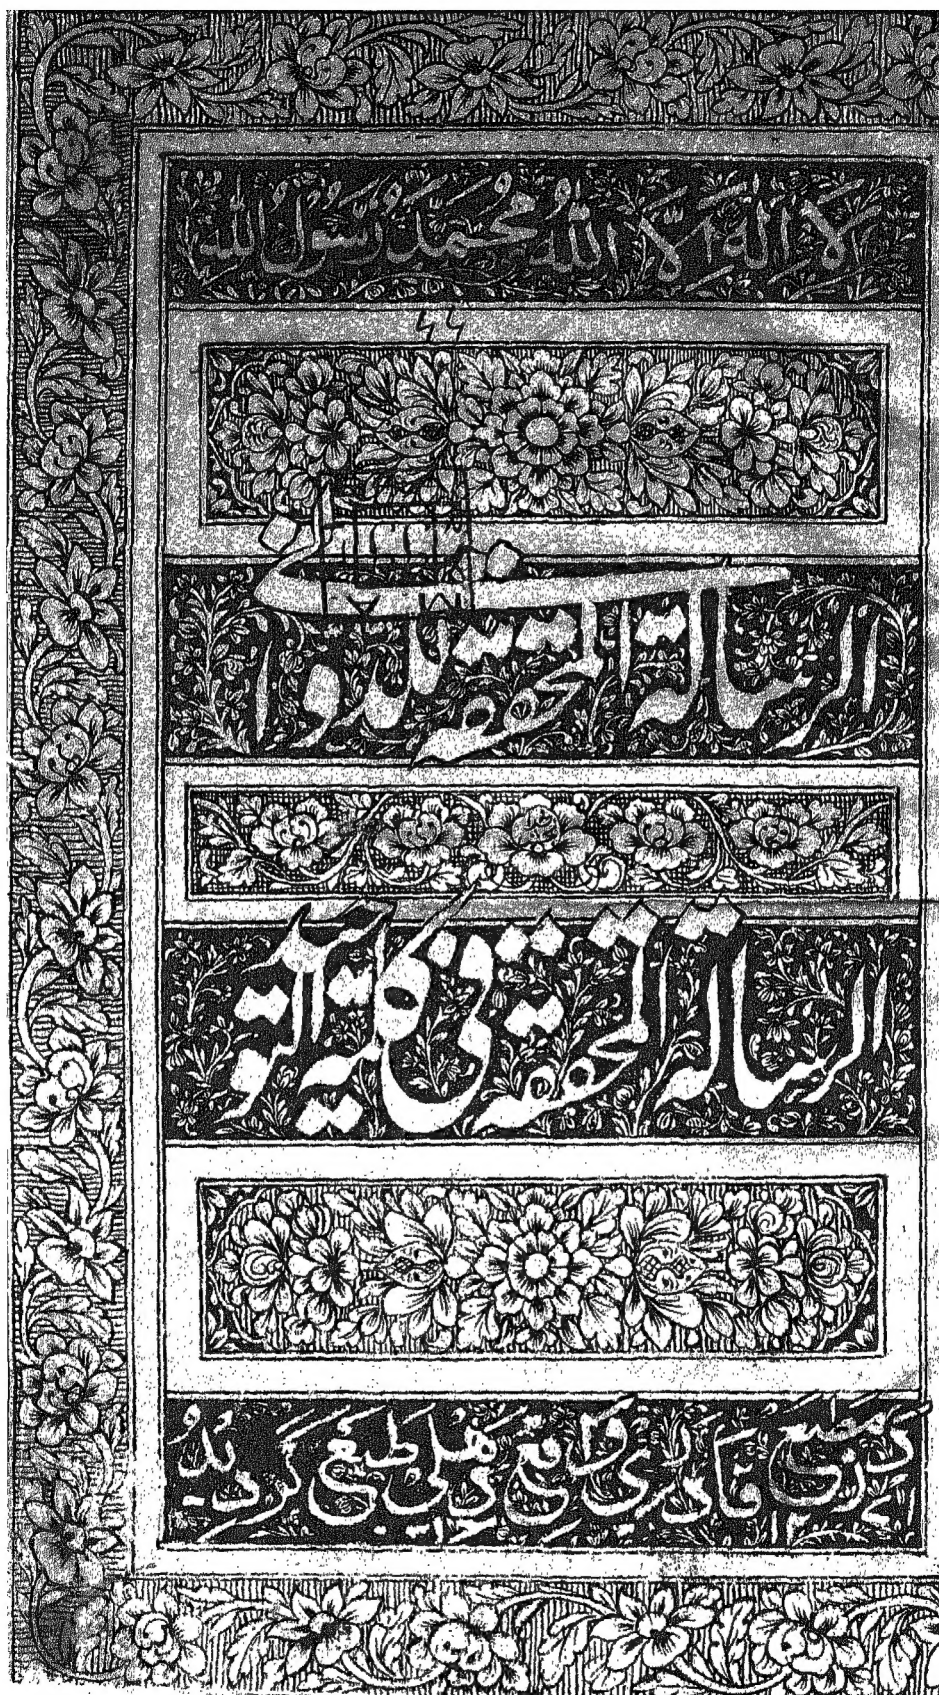 لا اله الا الله محمد رسول الله
الرسالة المحققة للدوانی
الرسالة المحققة فی کلمة التوحید
مطبع قادری واقع دهلی طبع گردید